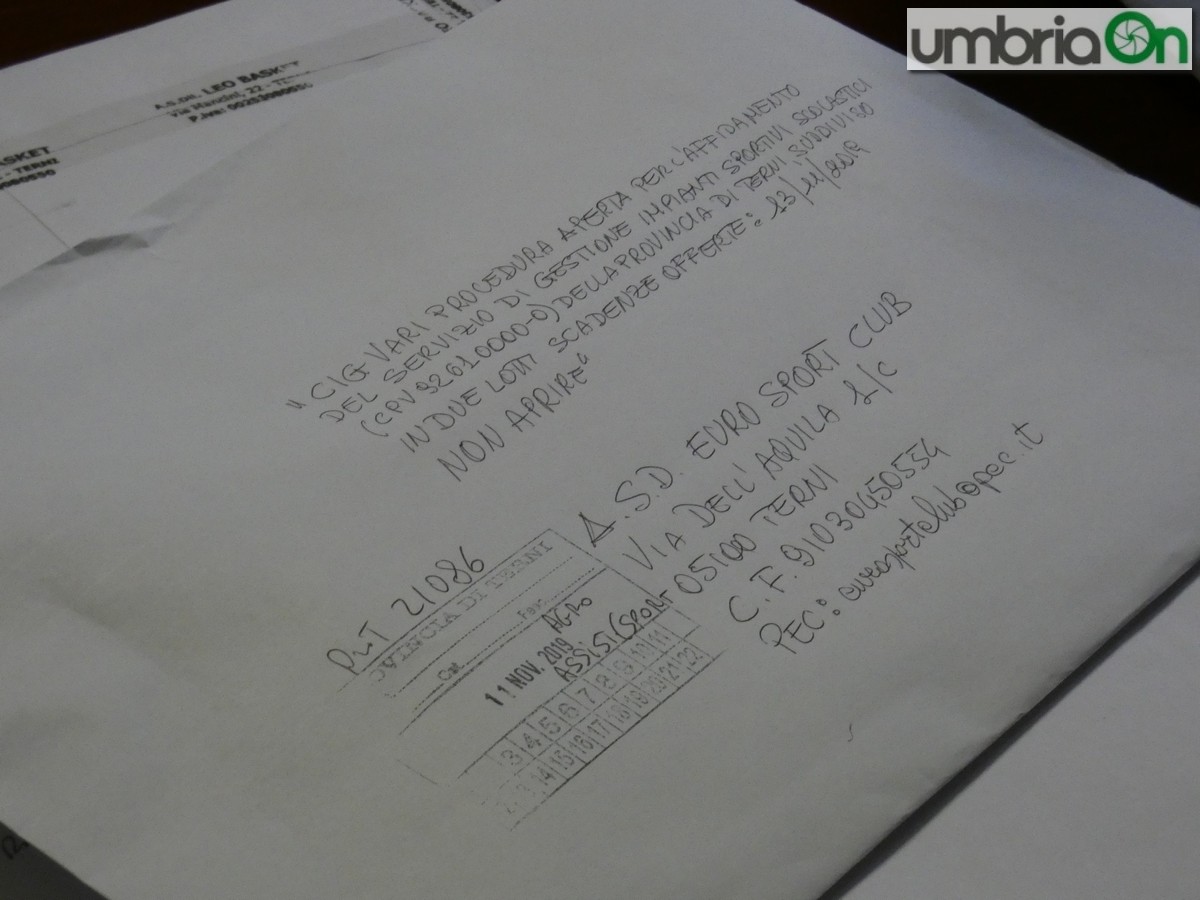 umbriaOn
A.S.Dil. LEO BASKET
Via Manzini, 22 -
P.Iva:
ASKET
- TERNI
" CIG VARI PROCEDURA APERTA PER L'AFFIDAMENTO
DEL SERVIZIO DI GESTIONE IMPIANTI SPORTIVI SCOLASTICI
(CPV 92610000-0) DELLA PROVINCIA DI TERNI SUDDIVISO
IN DUE LOTTI SCADENZE OFFERTE: 13/11/2019
NON APRIRE"
A.S.D. EURO SPORT CLUB
VIA DELL'AQUILA 1/C
05100 TERNI
C.F. 91030450554
PEC: eurosportclub@pec.it
21086
OVINCIA DI TERNI
Cat. Fasc.
11 NOV. 2019
ASSISI (SPORT
3 4 5 6 7 8 9 10 11
14 15 16 17 18 19 20 21 22